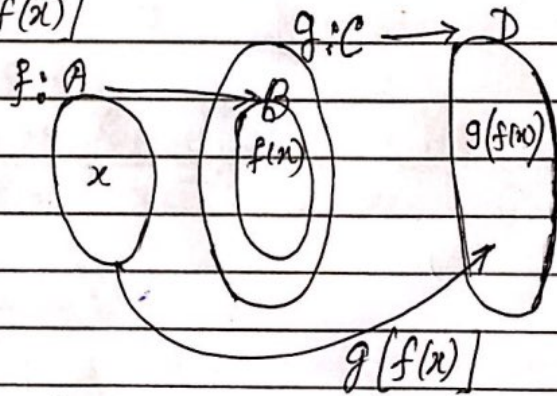 f(x)]
g : C → D
f : A → B
x f(x) g(f(x))
g[f(x)]